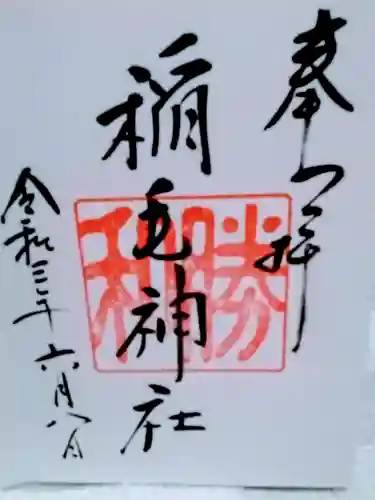 奉拝
稲毛神社
勝利
令和三年六月八日